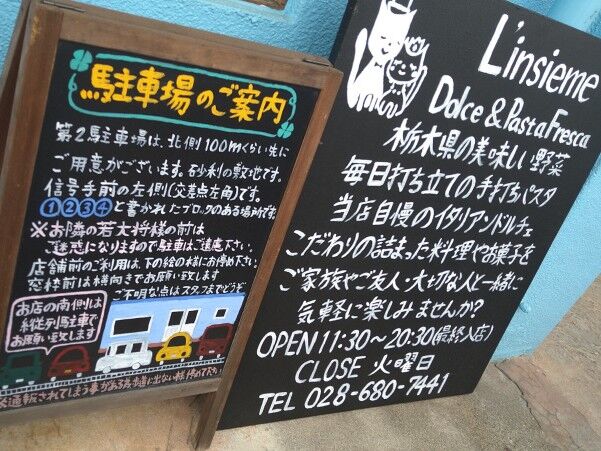 駐車場のご案内
第2駐車場は、北側100mくらい先に
ご用意がございます。砂利の敷地です。
信号手前の左側(交差点左角)です。
①②③④と書かれたブロックのある場所です。
※お隣の若大将様の前は
ご迷惑になりますので駐車はご遠慮下さい。
店舗前のご利用は、下の絵の様にお停め下さい。
窓枠前は横向きでお願い致します
ご不明な点はスタッフまでどうぞ
お店の南側は
縦列駐車で
お願い致します
通報されてしまう事がある為歩道に出ない様停めて下さい
L'insieme
Dolce & Pasta Fresca
栃木県の美味しい野菜
毎日打ち立ての手打ちパスタ
当店自慢のイタリアンドルチェ
こだわりの詰まった料理やお菓子を
ご家族やご友人・大切な人と一緒に
気軽に楽しみませんか?
OPEN 11:30～20:30(最終入店)
CLOSE 火曜日
TEL 028-680-7441